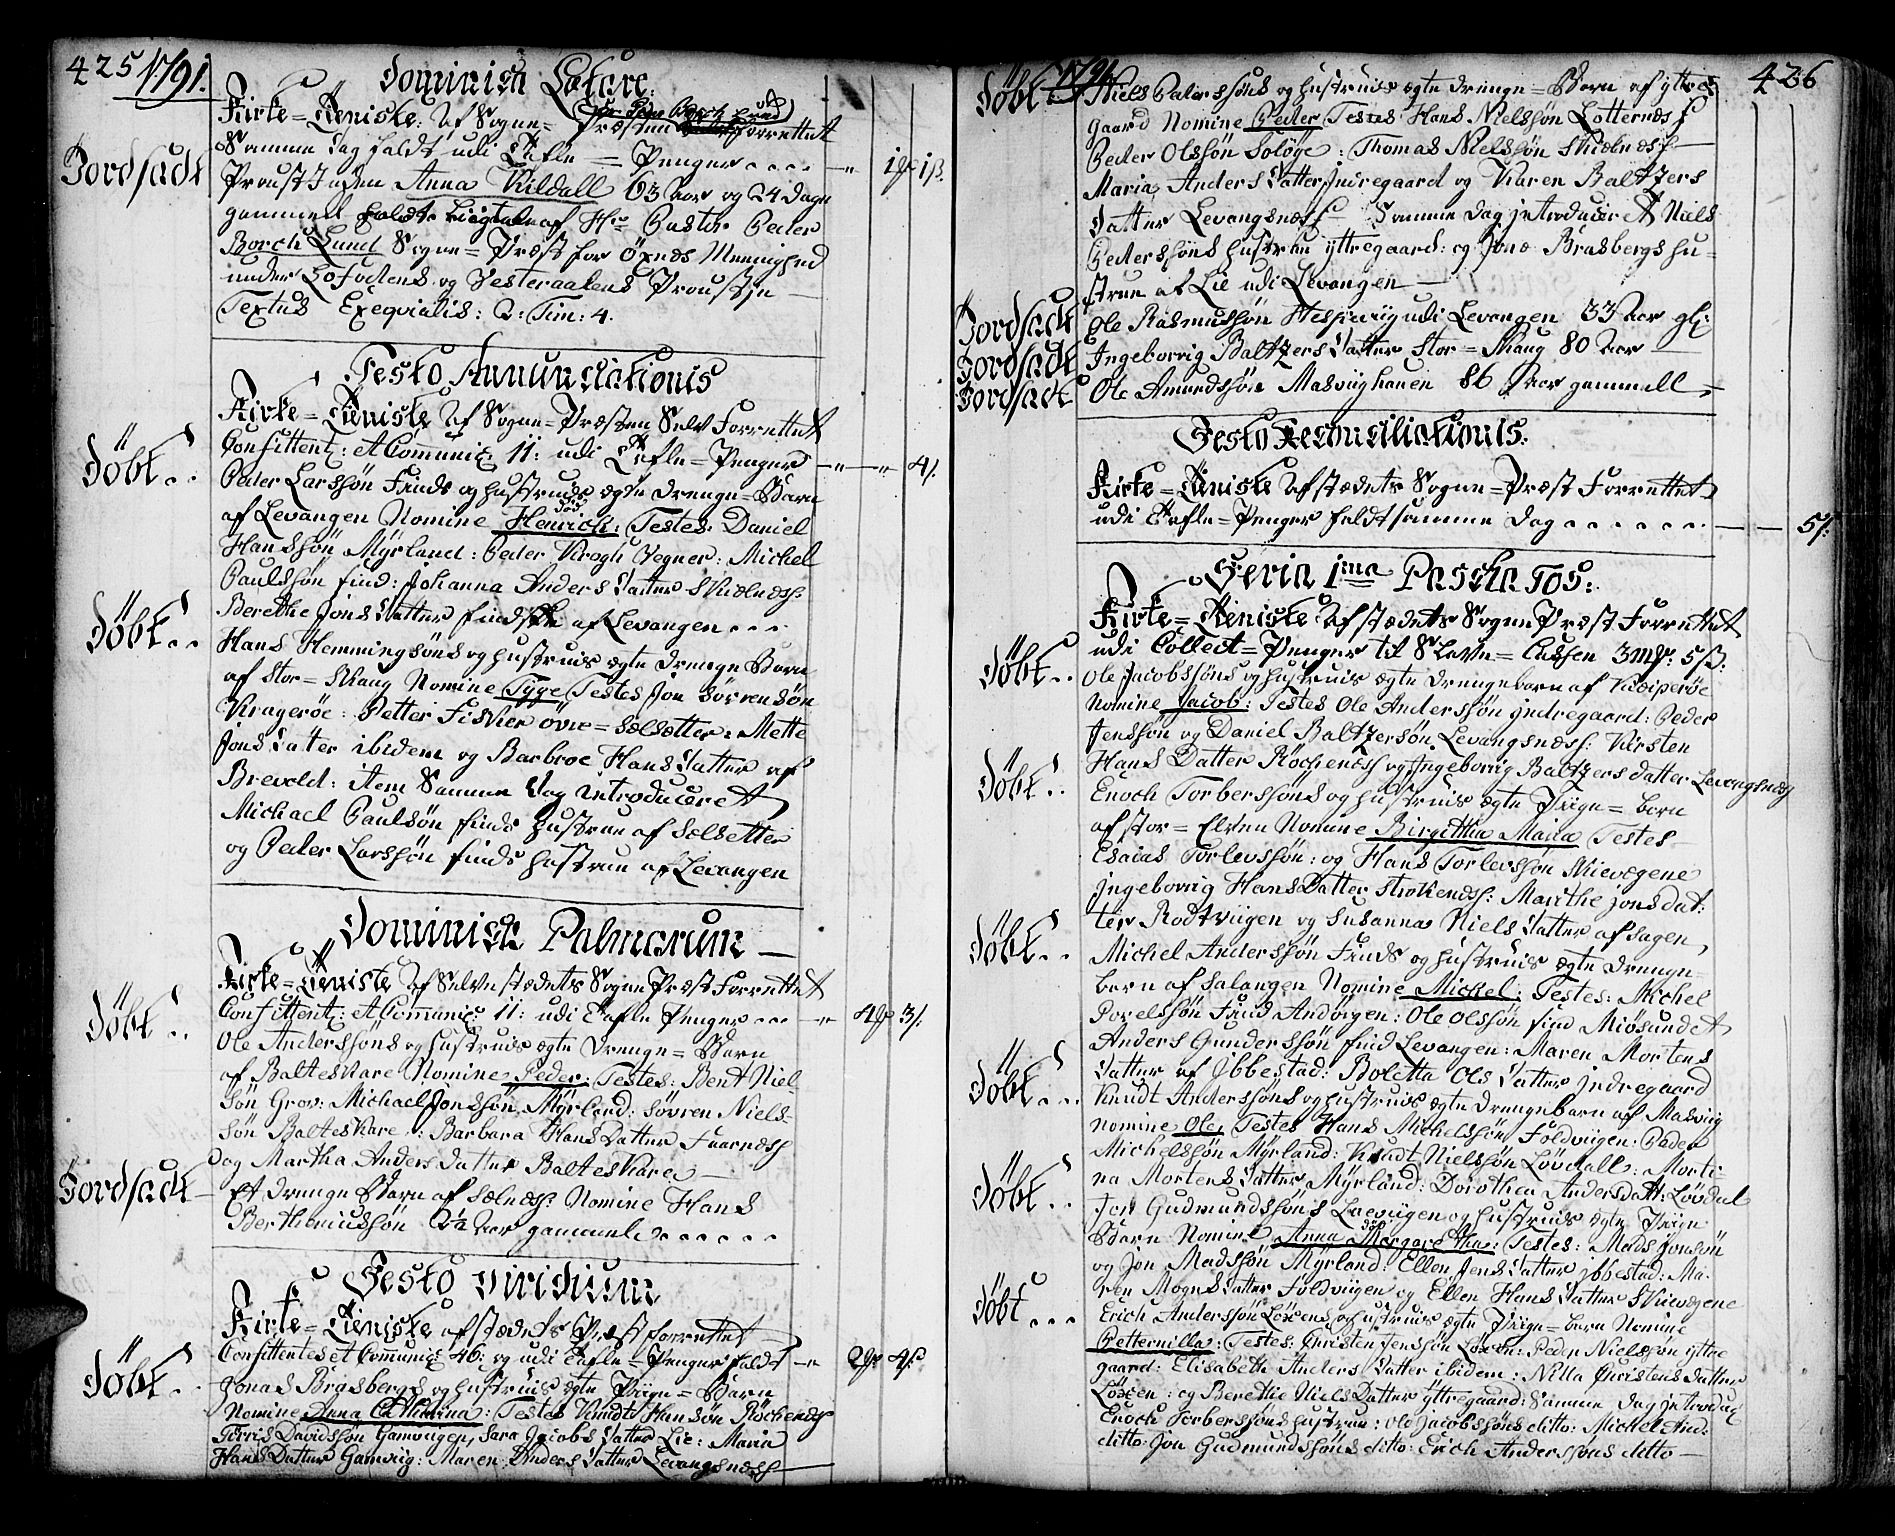 425 1791.
Dominica Lætare.
Kirke = Tieniste: Af Sogne = Præsten Hr. Peder Borch Lund forrettet
Samme dag faldt udi Tafle = Penger .... 1 1ß.
Jordfæstet Proustinden Anna Kildall 63 Aar og 24 Dage
gammel holdt Liigtale af Hr. Pastor Peder
Borch Lund Sogne = Præst for Öxnes Meenighed
under Lofodens og Vesteraalens Proustie
Textus Exeqvialis: 2: Tim: 4.
Festo Annunciationis
Kirke = Tieniste Af Sogne = Præsten Selv Forrettet
Confittent: et Communic: 11: udi Tafle = Penger 4ß.
Döbt.. Peder Larssön Finds og hustrues ægte Drenge = Barn
af Levangen Nomine Henrich: Testes: Daniel
Hanssön Myrland: Peder Krogh Vegner: Michel
Paulssön find: Johanna Anders Datter Skielnes:
Berethe Jons Datter findsk af Levangen...
Döbt.. Hans Hemmingsöns og hustrues ægte Drenge Barn
af Stor = Skaug Nomine Tyge Testes Jon Sörrensön
Krageröe: Petter Fischer övre = Sælsætter: Mette
Jons Datter ibidem og Barbroe Hans Datter af
Brevold: item Samme Dag introduceret
Michael Paulsön finds hustrue af Sælsetter
og Peder Larssön finds hustrue af Levangen
Dominica Palmarum
Kirke = Tieniste Af Selve stædets Sogne Præst Forrettet
Confittent: et Communic: 11: udi Tafle Penger ... 4 3ß.
Döbt.. Ole Anderssöns og hustrues ægte Drenge = Barn
af Balteskare Nomine Peder: Testes: Bent Niel-
sön Grov: Michael Jonssön Myrland: Sövren Niels-
sön Balteskare: Barbara Hans Datter Faarnes
og Martha Anders datter Balteskare
Jordfæstet Et Drenge Barn af Sælnes: Nomine Hans
Bertheniussön 2½ Aar gammel......
Festo Viridium
Kirke = Tieniste af stædets Præst forrettet
Confittentes et Communic: 46: og udi Tafle = Penger faldt 2 4ß
Döbt.. Jonas Brasbergs og hustrues ægte Piige = Barn
Nomine Anna Cathrina: Testes Knudt Hansön Röchenes
Törris Davidssön Gamvigen, Sara Jacobs Datter Lie: Maria
Hans Datter Gamviig: Maren Anders Datter Levangsnes
1791. 426
Döbt Niels Pederssöns og hustrues ægte Drenge = Barn af yttre
gaard Nomine Peder Testes Hans Nielssön Lotternes
Peder Olssön Solöge: Thomas Nielssön Skielnes
Maria Anders Datter Indregaard og Karen Baltzers
Datter Levangsnes Samme Dag introduceret Niels
Pederssöns hustrue yttregaard: og Jonas Brasbergs hu-
strue af Lie udi Levangen
Jordfæstet Ole Rasmussön Hesviig udi Levangen 33 Aar gl:
Jordfæstet Ingeborrig Baltzers Datter Stor = Skaug 80 Aar
Jordfæstet Ole Amundssön Masviighauen 86 Aar gammell
Festo Reconciliationis.
Kirke = Tieniste af stædets Sogne = Præst Forrettet
udi Tafle = Penger faldt samme Dag ....... 5ß.
Feria 1ma Paschatos:
Kirke = Tieniste Af stædets Sogne Præst Forrettet
udi Collect = Penger til Slave = Cassen 3 mk: 5ß.
Döbt.. Ole Jacobssöns og hustrues ægte Drengebarn af
Nomine Jacob: Testes Ole Anderssön Indregaard: Peder
Jenssön og Daniel Baltzersön Levangsnes: Kirsten
Hans Datter Röchenes og Ingeborrig Baltzers datter Levangsnes
Döbt.. Enoch Torberssöns og hustrues ægte Piige = barn
af Stor = Elven Nomine Birgitha Maria Testes
Esaias Torlevssön: og Hans Torlevssön Skievegene
Ingeborrig Hans Datter Strokenes: Marithe Jonsdat:
ter Rodtviigen og Susanna Niels Datter af Sagen
Döbt.. Michel Anderssön Finds og hustrues ægte Drenge
barn af Salangen Nomine Michel: Testes: Michel
Povelssön Find Andörgen: Ole Olssön find Miösundet
Anders Gunderssön find Levangen: Maren Mortens
Datter af Ibbestad: Boletta Ols Datter Indregaard
Döbt... Knudt Anderssöns og hustrues ægte Drengebarn af Masviig
nomine Ole, Testes Hans Michelssön Foldviigen: Peder
Michelssön Myrland: Knudt Nielssön Lövdall: Morte-
na Mortens Datter Myrland: Dorothea Andersdatt: Lövdal
Döbt.. Jon Gudmundssöns Laeviigen og hustrues ægte Piige
Barn Nomine Anna Margaretha: Testes: Mads Jonssön
og Jon Madssön Myrland: Ellen Jens Datter Ibbestad: Ma-
ren Mogns Datter Foldviigen og Ellen Hans Datter Skievegene
Döbt... Erich Anderssöns Löxens og hustrues ægte Piige = barn Nomine
Petternilla: Testes: Christen Jenssön Löxen: Peder Nielssön yttre
gaard: Elisabeth Anders Datter ibidem: Nilla Christens Datter
Löxen: og Berethe Niels Datter yttregaard: Samme Dag introduc:
Enoch Torberssöns hustrue: Ole Jacobssöns ditto: Michel And:
ditto: Jon Gudmundssöns ditto: Erich Anderssöns ditto